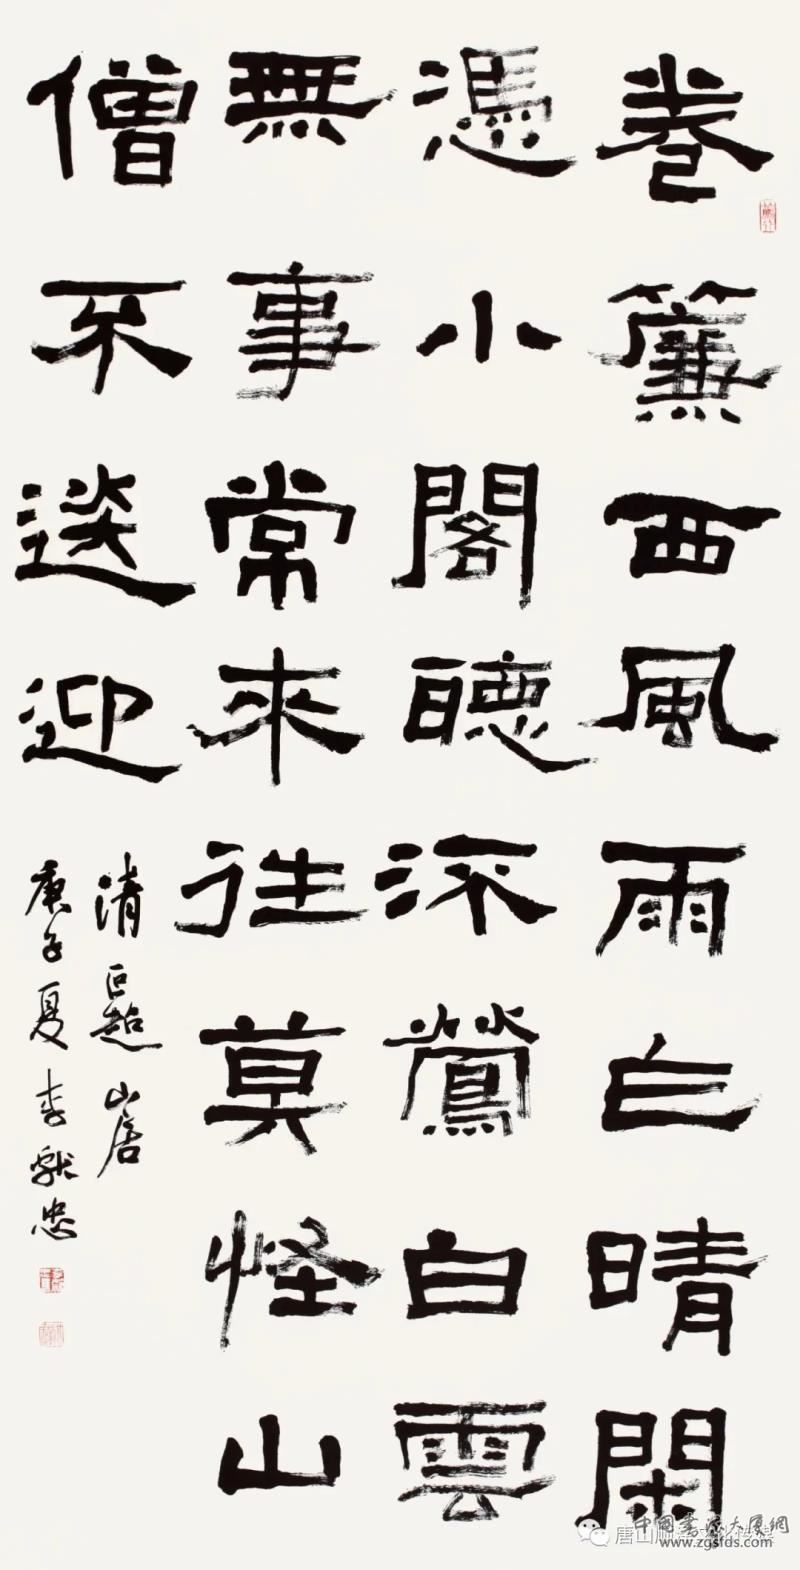 卷簾西風雨乍晴閑
憑小閣聽流鶯白雲
無事常來往莫怪山
僧不送迎
清巨超山居
庚子夏李獻忠
唐山
中國書法大廈網
www.zgsfds.com